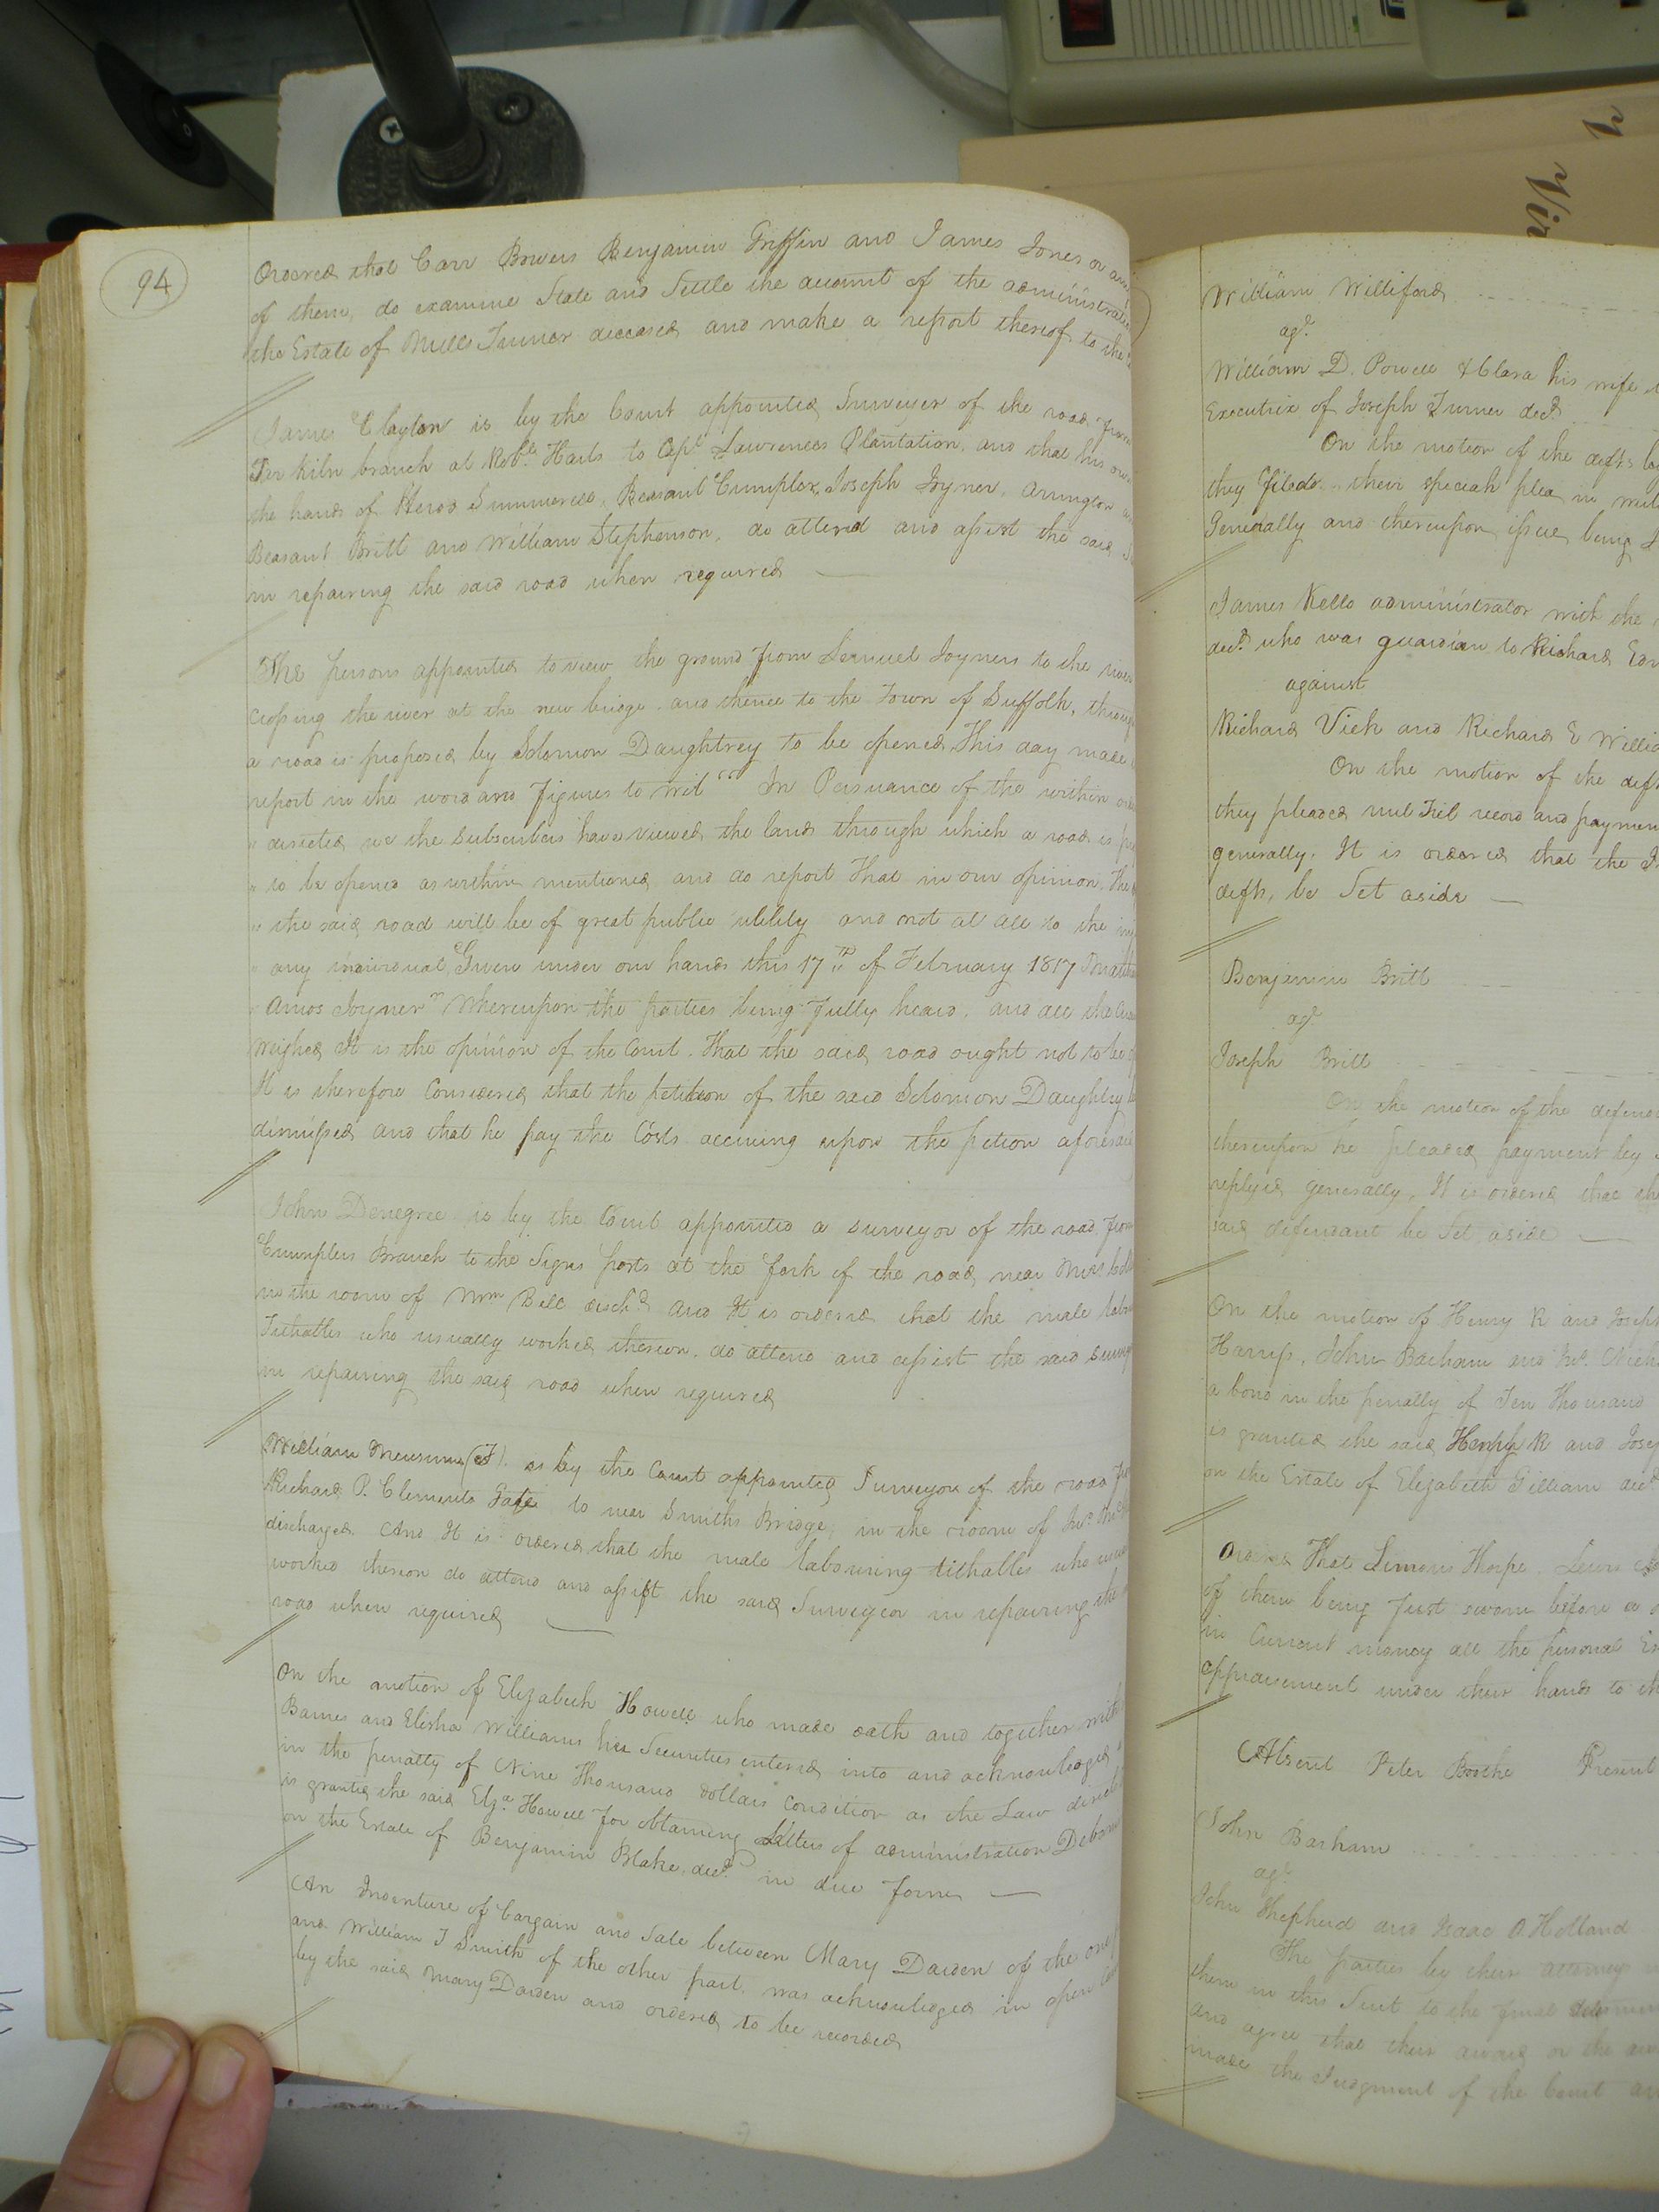 94
Ordered that Carr Bowers Benjamin Griffin and James Jones or any
of them, do examine State and Settle the account of the administration
the Estate of Mills Turner deceased and make a report thereof to the
James Clayton is by the Court appointed Surveyor of the road from
Tar kiln branch at Robt. Harts to Capt. Lawrences Plantation, and that his own
the hands of Herod Summerell, Beasant Crumpler, Joseph Joyner, Arrington
Beasant Britt and William Stephenson, do attend and assist the said
in repairing the said road when required
The persons appointed to view the ground from Lemuel Joyners to the river
crossing the river at the new bridge and thence to the Town of Suffolk, through
a road is proposed by Solomon Daughtrey to be opened, This day made
report in the word and figures to wit "In Persuance of the within
" directed we the subscribers have viewed the lands through which a road is
" to be opened as within mentioned and do report That in our opinion, The
" the said road will be of great public utility and not at all to the
" any individual, Given under our hands this 17th of February 1817
" Amos Joyner" Whereupon the parties being fully heard, and all the
weighed It is the opinion of the Court, that the said road ought not to be
It is therefore Considered that the petition of the said Solomon Daughtrey be
dismissed and that he pay the Costs accruing upon the petion aforesaid
John Denegree is by the Court appointed a surveyor of the road from
Crumplers Branch to the Signs posts at the fork of the road, near
in the room of Wm Bell dischd. and It is ordered that the male
Tithables who usually worked thereon, do attend and assist the said
in repairing the said road when required
William Newsum (T). is by the Court appointed Surveyor of the road
Richard P. Clements Gate to near Smiths Bridge, in the room of
discharged. And It is ordered that the male labouring tithables who
worked thereon do attend and assist the said Surveyor in repairing the
road when required
On the motion of Elizabeth Howell who made oath and together with
Barnes and Elisha Williams her Securities entered into and acknowledged
in the penalty of Nine Thousand Dollars Condition as the Law directs
is granted the said Elza. Howell for obtaining Letters of administration
on the Estate of Benjamin Blake, decd. in due form
An Indenture of bargain and Sale between Mary Darden of the one
and William T Smith of the other part, was acknowledged in open
by the said Mary Darden and ordered to be recorded
William Williford
agt.
William D. Powell & Clara his wife
Executrix of Joseph Turner decd
On the motion of the defts by
they filed their special plea in
Generally and thereupon issue being
James Kello administrator with the
decd. who was guardian to Richard
against
Richard Vick and Richard E
On the motion of the
they pleaded nul Tiel record and
generally. It is ordered that the
defts, be Set aside
Benjamin Britt
agt
Joseph Britt
On the motion of the
thereupon he pleaded payment by
replyed generally, It is ordered that the
said defendant be Set aside
On the motion of Henry R and
Harris, John Barham and
a bond in the penalty of Ten Thousand
is granted the said Henry R and
on the Estate of Elizabeth Gilliam decd
Ordered That Simons Thorpe
of them being first sworn before a
in Current money all the personal
appraisement under their hands to
Absent Peter Boothe Present
John Barham
agt.
John Shepherd and Isaac O Holland
The parties by their attorney
them in this Suit to the final
and agree that their award or the
made the Judgment of the Court